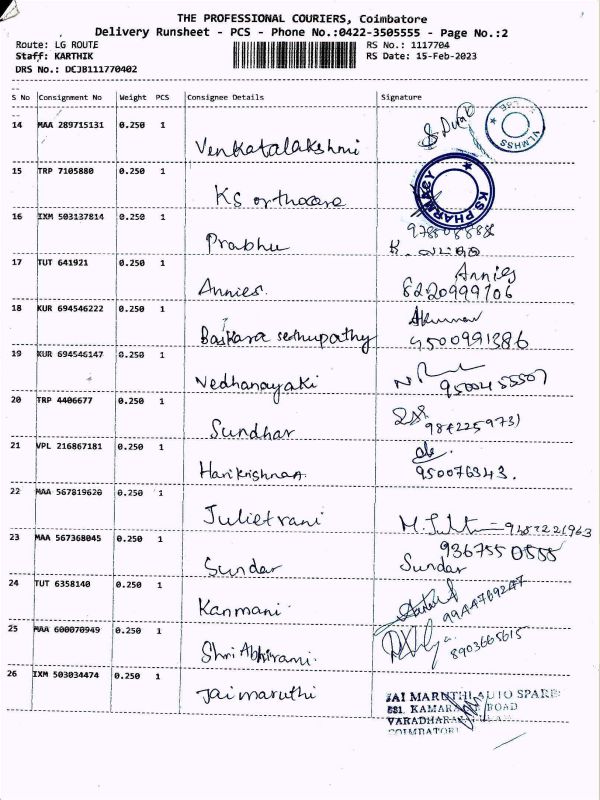 THE PROFESSIONAL COURIERS, Coimbatore
Delivery Runsheet - PCS - Phone No.:0422-3505555 - Page No.:2
Route: LG ROUTE
RS No.: 1117704
Staff: KARTHIK
RS Date: 15-Feb-2023
DRS No.: DCJB111770402
S No Consignment No Weight PCS Consignee Details Signature
14 MAA 289715131 0.250 1 Venkatalakshmi
VLMHSS
15 TRP 7105880 0.250 1 KS orthocare
KS PHARMACY
16 IXM 503137814 0.250 1 Prabhu
17 TUT 641921 0.250 1 Annies. Annies
8220999706
18 KUR 694546222 0.250 1 Baskara sethupathy
4500991386
19 KUR 694546147 0.250 1 Vedhanayaki
9500455507
20 TRP 4406677 0.250 1 Sundhar
9842259731
21 VPL 216867181 0.250 1 Harikrishnan
950076343.
22 MAA 567819620 0.250 1 Julietrani
23 MAA 567368045 0.250 1 Sundar 9367550555
Sundar
24 TUT 6358140 0.250 1 Kanmani
9944769247
25 MAA 600070949 0.250 1 Shri Abhirami.
8903665615
26 IXM 503034474 0.250 1 Jaimaruthi
JAI MARUTHI AUTO SPARES
881, KAMARAJ ROAD
COIMBATORE